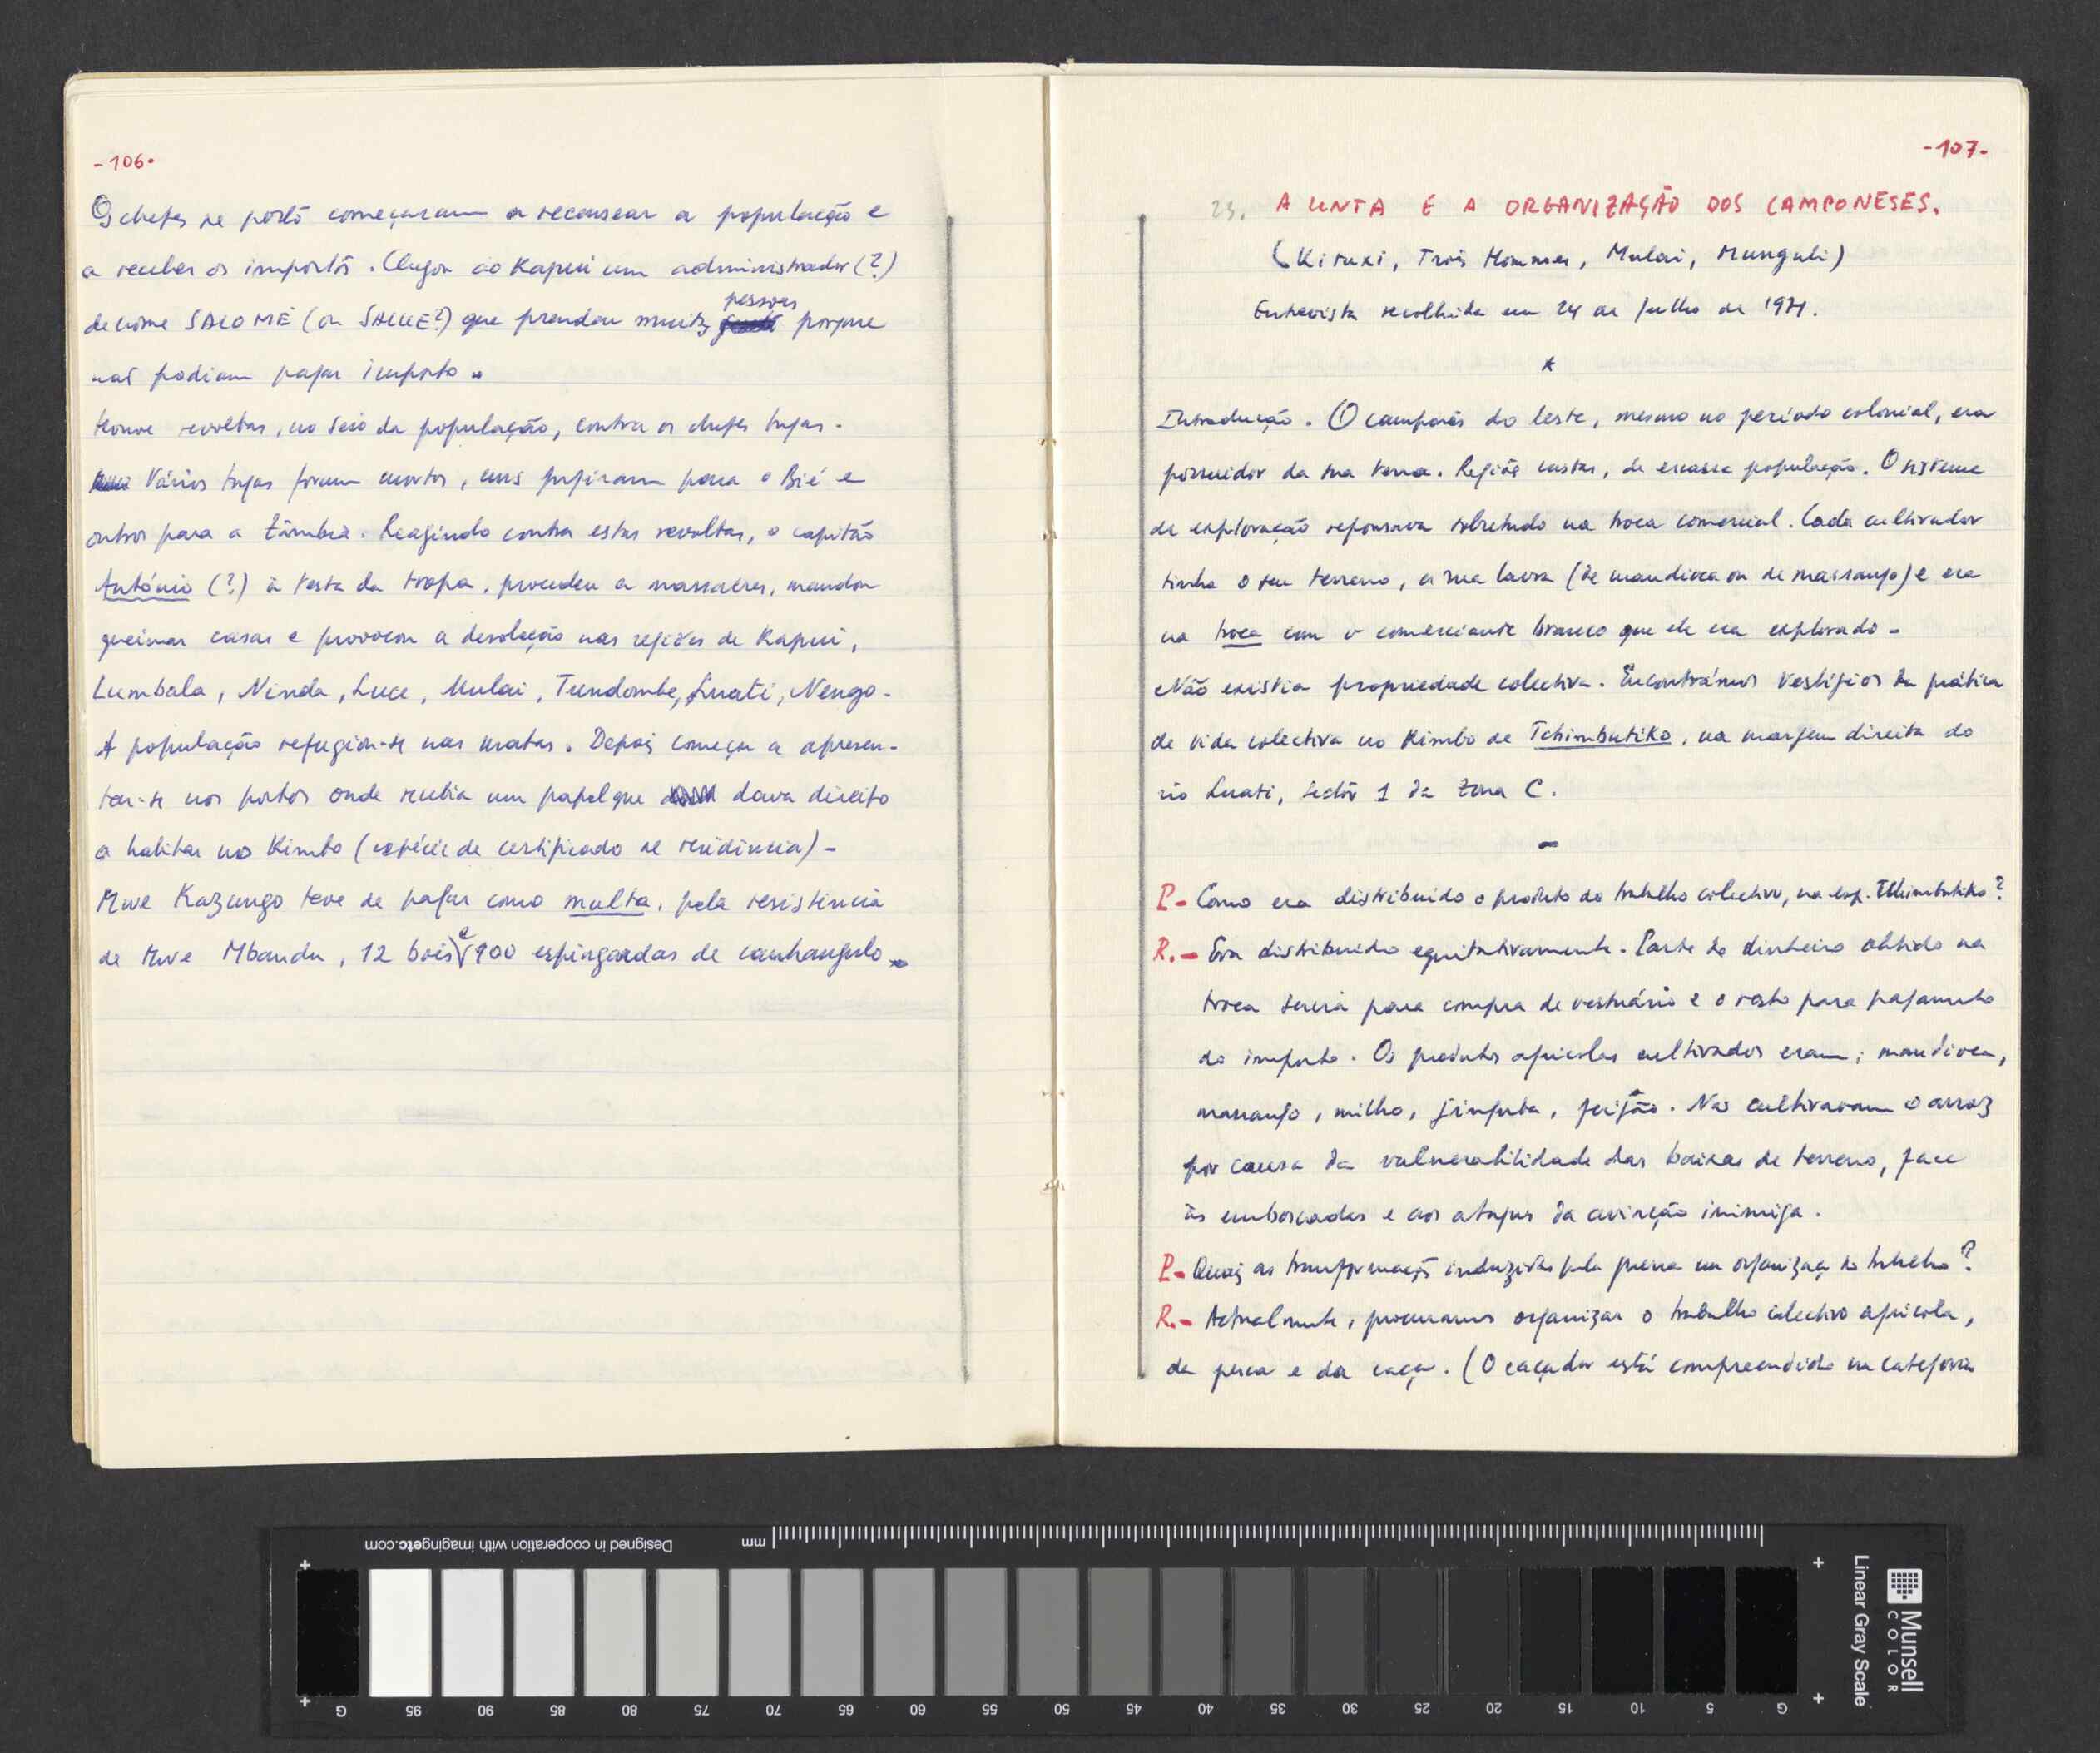 -106-
Os chefes de posto começaram a recensear a população e
a receber os impostos. Chegou ao Kapui um administrador (?)
de nome SALOMÉ (ou SALLE?) que prendeu muitas pessoas porque
não podiam pagar imposto.
Houve revoltas, no seio da população, contra os chefes tugas.
Vários tugas foram mortos, uns fugiram para o Bié e
outros para a Zâmbia. Reagindo contra estas revoltas, o capitão
António (?) à testa da tropa, procedeu a massacres, mandou
queimar casas e provocou a desolação nas regiões de Kapui,
Lumbala, Ninda, Luce, Mulai, Tundombe, Luati, Nengo.
A população refugiou-se nas matas. Depois começou a apresen-
tar-se nos postos onde recebia um papel que dava direito
a habitar nos Kimbo (espécie de certificado de residência)-
Mwe Kazungo teve de pagar como multa, pela resistência
de Mwe Mbandu, 12 bois e 900 espingardas de canhangulo.
-107-
23. A UNTA E A ORGANIZAÇÃO DOS CAMPONESES.
(Kituxi, Trois Hommes, Mulai, Munguli)
Entrevista recolhida em 24 de Julho de 1971.
*
Introdução. O camponês do leste, mesmo no período colonial, era
possuidor da sua terra. Regiões vastas, de escassa população. O sistema
de exploração repousava sobretudo na troca comercial. Cada cultivador
tinha o seu terreno, a sua lavra (de mandioca ou de massango) e era
na troca com o comerciante branco que ele era explorado.
Não existia propriedade colectiva. Encontrámos vestígios da prática
de vida colectiva no Kimbo de Tchimbutiko, na margem direita do
rio Luati, Sector 1 da Zona C.
-
P.- Como era distribuido o produto do trabalho colectivo, na exp. Tchimbutiko?
R.- Era distribuido equitativamente. Parte do dinheiro obtido na
troca servia para compra de vestuário e o resto para pagamento
do imposto. Os produtos agrícolas cultivados eram: mandioca,
massango, milho, jinguba, feijão. Não cultivavam o arroz
por causa da vulnerabilidade das baixas de terreno, face
às emboscadas e aos ataques da aviação inimiga.
P.- Quais as transformações induzidas pela guerra na organizaç. do trabalho?
R.- Actualmente, procuramos organizar o trabalho colectivo agrícola,
da pesca e da caça. (O caçador está compreendido na categoria
Designed in cooperation with imagingetc.com
mm
G 95 90 85 80 75 70 65 60 55 50 45 40 35 30 25 20 15 10 5 G
Munsell
COLOR
Linear Gray Scale